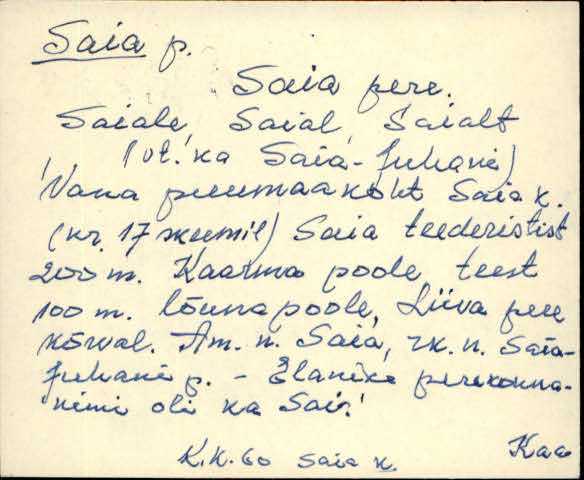 Saia p.
Saia pere.
Saiale, Saial, Saialt
(vt. ka Saia-Juhani)
Vana puumaakoht Saia k.
(nr. 17 skeemil) Saia teederistist
200 m. Kaarma poole, teest
100 m. lõunapoole, Liiva pere
kõrval. Am. n. Saia, rk. n. Saia-
Juhani p. - Elanike perekonna-
nimi oli ka Sai.
K.K. 60 Saia k. Kaa